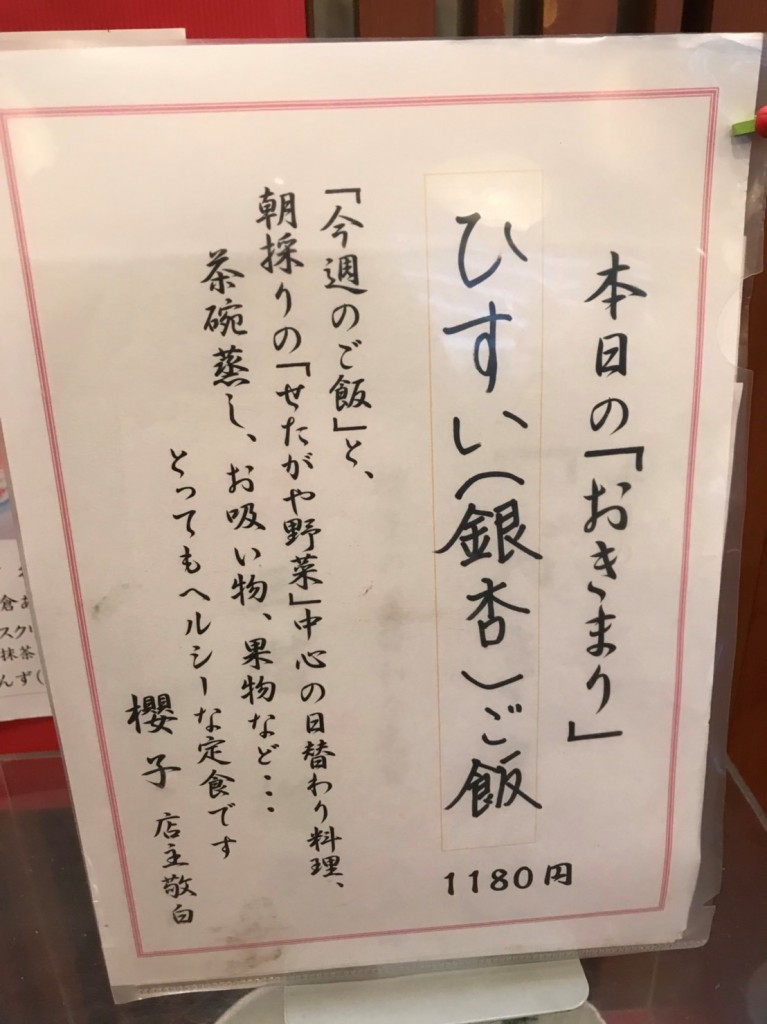 本日の「おきまり」
ひすい(銀杏)ご飯
1180円
「今週のご飯」と、
朝採りの「せたがや野菜」中心の日替わり料理、
茶碗蒸し、お吸い物、果物など・・・
とってもヘルシーな定食です
櫻子 店主敬白
スク
抹茶
んず(